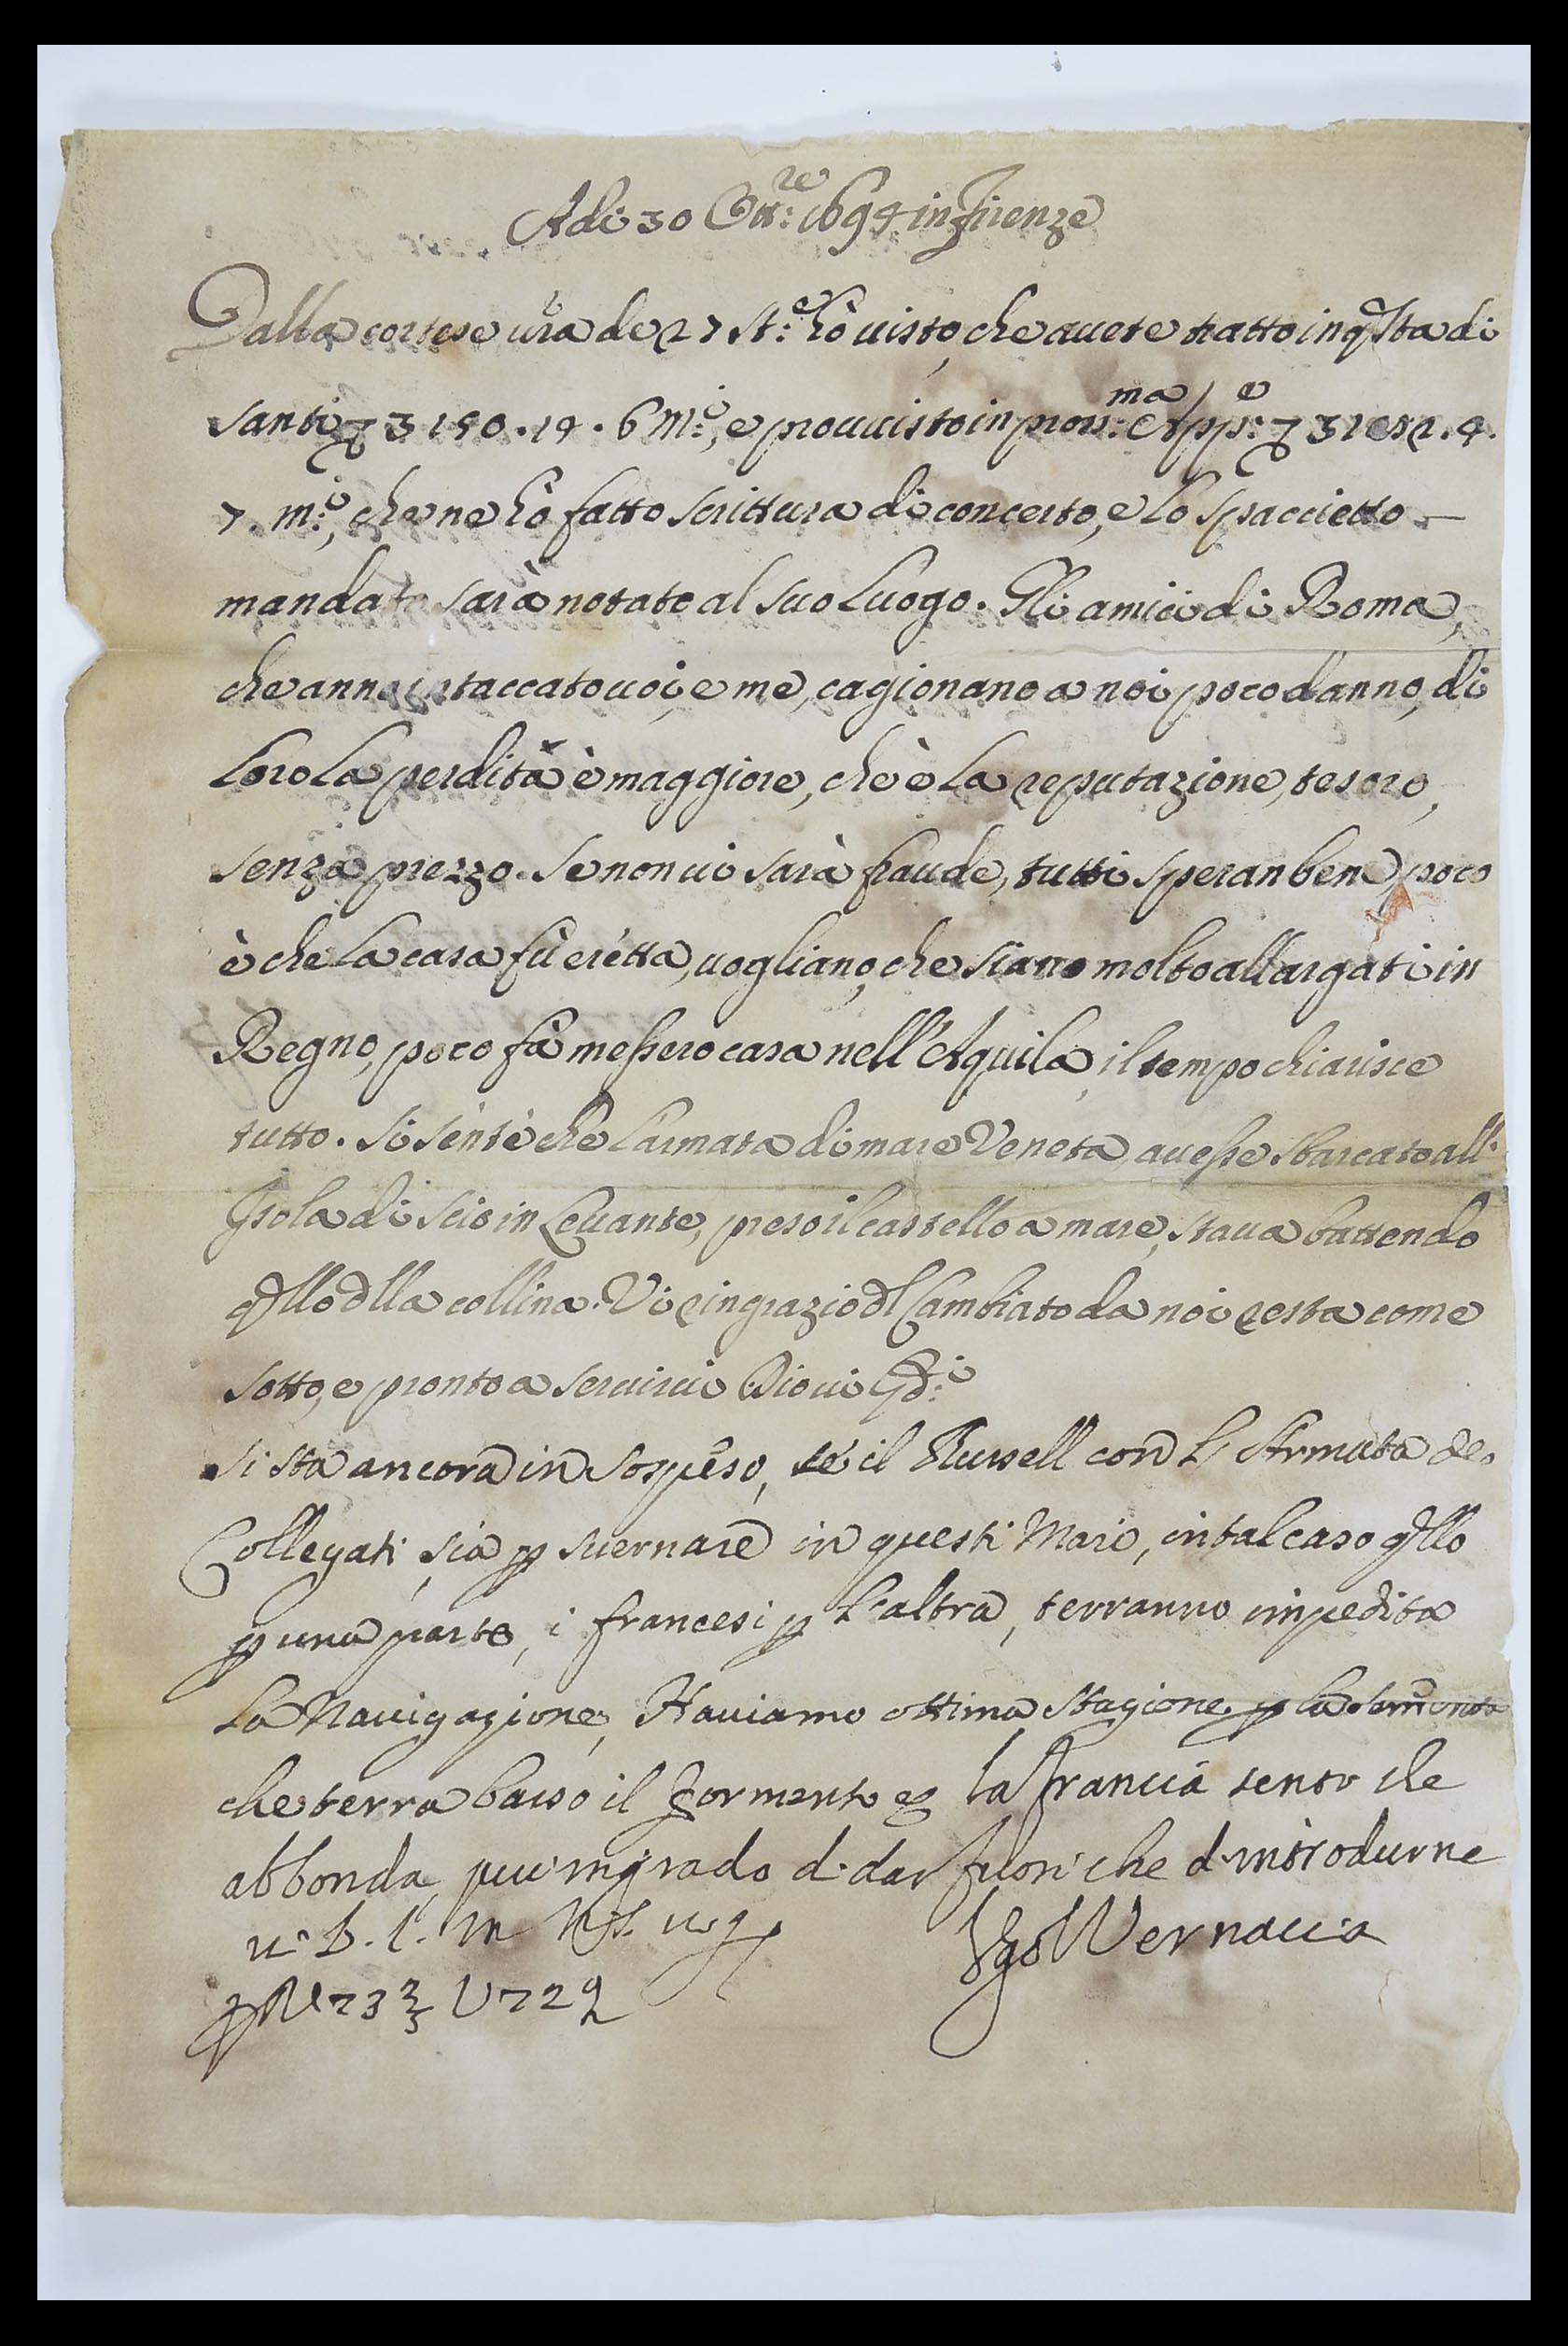 Adi 30 Ott:re 1694 in Firenze
Dalla cortese vra de 27 St:e hò uisto, che auete tratto in qsta di
Santi 3150.14.6 m:i, e prouuisto in pross:ma App:e
7. m:i, che ne hò fatto scrittura di concerto, e lo spaccietto —
mandato sarà notato al suo Luogo. Gli amici di Roma,
che anno intaccato uoi, e me, cagionano a noi poco danno, di
Loro La perdità è maggiore, chè è La reputazione, tesoro,
senza prezzo. Se non ui sarà fraude, tutti speran bene, poco
è che La casa fù erétta, uogliano, che siano molto allargati in
Regno, poco fà messero casa nell'Aquila, il tempo chiarisce
tutto. Si sente che L'armata di mare Veneta, auesse sbarcato all'
Isola di Scio in Leuante, preso il castello a mare, staua battendo
qllo dlla collina. Vi ringrazio dl Cambiato da noi resta come
sotto, e pronto a seruirui Dio ui Gd:i
Si sta ancora in sospeso, se il Russell con L'Armata de.
Collegati, sia p suernare in questi Mari, in tal caso qllo
p una parte, i francesi p L'altra, terranno impedita
La Nauigazione, Hauiamo ottima stagione p la sementa
che terra basso il formento e la Francia sento che
abbonda, piu in grado di dar fuori che d'introdurne
u. B. l. M
73 2/3 722 Ugo Vernaccia